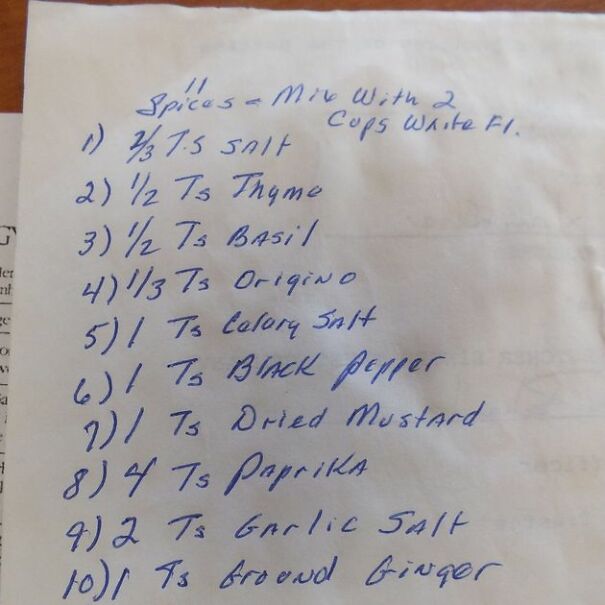 11
Spices - Mix With 2
Cups White Fl.
1) 2/3 Ts Salt
2) 1/2 Ts Thyme
3) 1/2 Ts Basil
4) 1/3 Ts Origino
5) 1 Ts Celary Salt
6) 1 Ts Black Pepper
7) 1 Ts Dried Mustard
8) 4 Ts Paprika
9) 2 Ts Garlic Salt
10) 1 Ts Ground Ginger